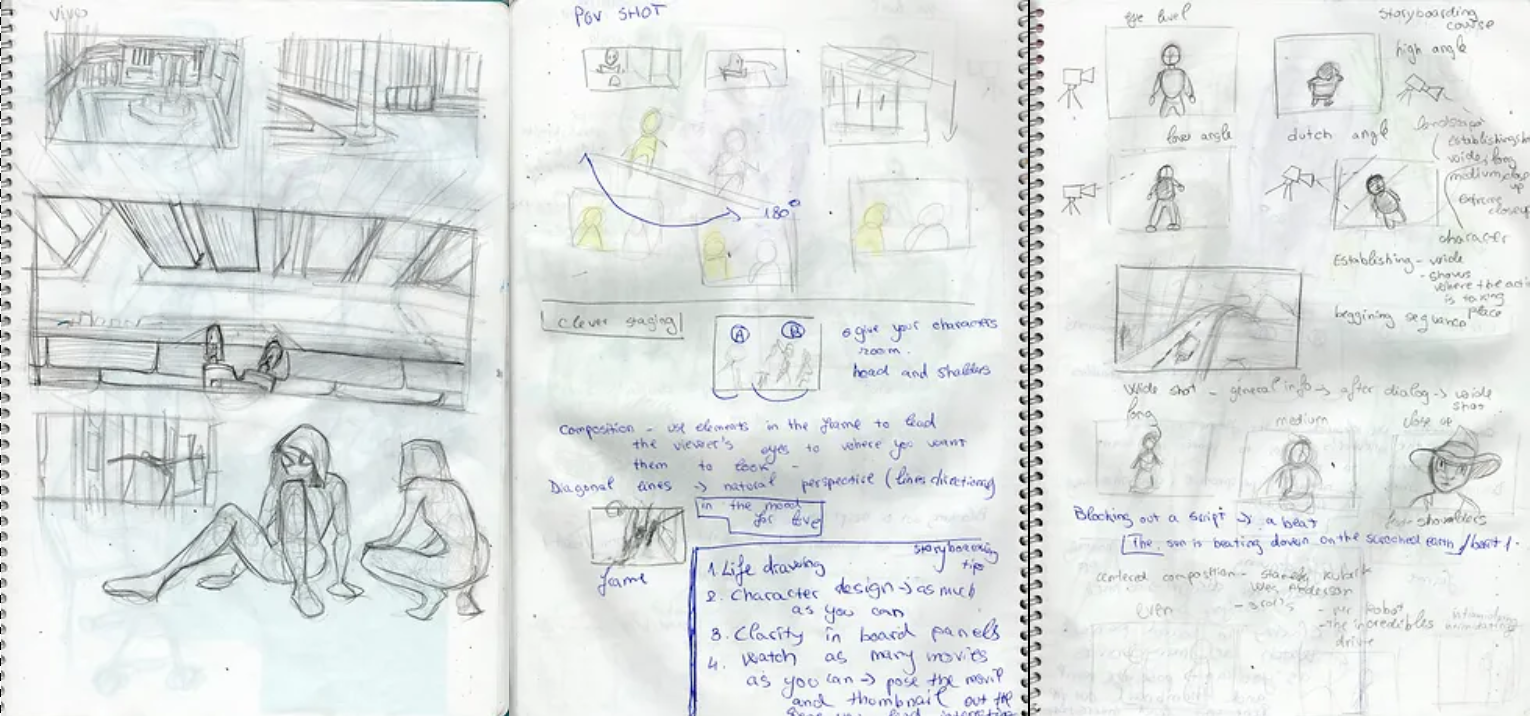 Vives
POV SHOT
180°
clever staging
A
B
give your characters
room.
head and sholders
Composition - use elements in the frame to lead
the viewer's eyes to where you want
them to look -
Diagonal lines → natural perspective (lines directioning
in the mood
for love
frame
storyboarding
tips
1. Life drawing
2. Character design → as much
as you can
3. Clarity in board panels
4. Watch as many movies
as you can → pose the movie
and thumbnail out the
eye level
storyboarding
course
high angle
low angle
dutch angle
landscape
establishing
wide, long
medium, close
up
extreme
closeup
character
Establishing - wide
- shows
where the acti
is taking
place
beggining sequance
Wide shot - general info → after dialog → wide
shot
long
medium
close up
shoulders
Blocking out a script → a beat
The sun is beating down on the scorched earth / beat 1.
centered composition - Stanely Kubrick
Wes Anderson
even
- mr Robot
- the incredibles
drive
intimidating